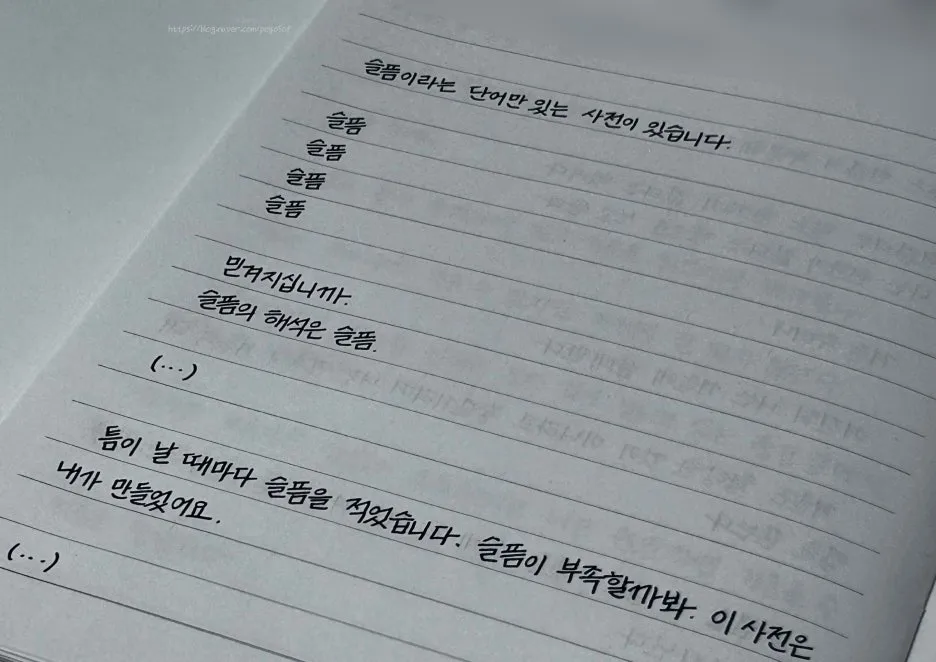 슬픔이라는 단어만 있는 사전이 있습니다.
슬픔
슬픔
슬픔
슬픔
믿겨지십니까.
슬픔의 해석은 슬픔.
(...)
틈이 날 때마다 슬픔을 적었습니다. 슬픔이 부족할까봐. 이 사전은
내가 만들었어요.
(...)